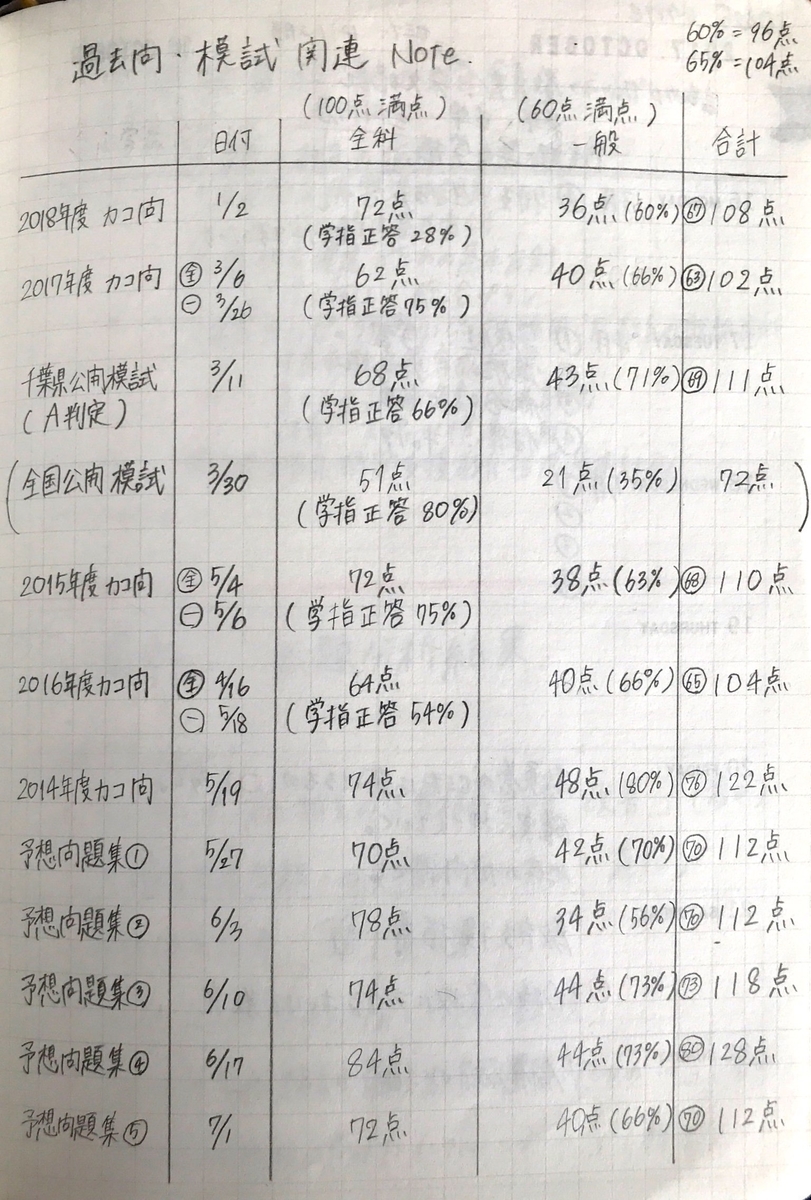 60% = 96点
65% = 104点
過去問・模試 関連 Note.
(100点満点) (60点満点)
日付 全科 一般 合計
2018年度 カコ問 1/2 72点 36点 (60%) 67 108点
(学指正答 28%)
2017年度 カコ問 全 3/6 62点 40点 (66%) 63 102点
一 3/26 (学指正答 75%)
千葉県公開模試 3/11 68点 43点 (71%) 69 111点
(A判定) (学指正答 66%)
(全国公開模試 3/30 51点 21点 (35%) 72点)
(学指正答 80%)
2015年度カコ問 全 5/4 72点 38点 (63%) 68 110点
一 5/6 (学指正答 75%)
2016年度カコ問 全 4/16 64点 40点 (66%) 65 104点
一 5/18 (学指正答 54%)
2014年度カコ問 5/19 74点 48点 (80%) 76 122点
予想問題集① 5/27 70点 42点 (70%) 70 112点
予想問題集② 6/3 78点 34点 (56%) 70 112点
予想問題集③ 6/10 74点 44点 (73%) 73 118点
予想問題集④ 6/17 84点 44点 (73%) 80 128点
予想問題集⑤ 7/1 72点 40点 (66%) 70 112点